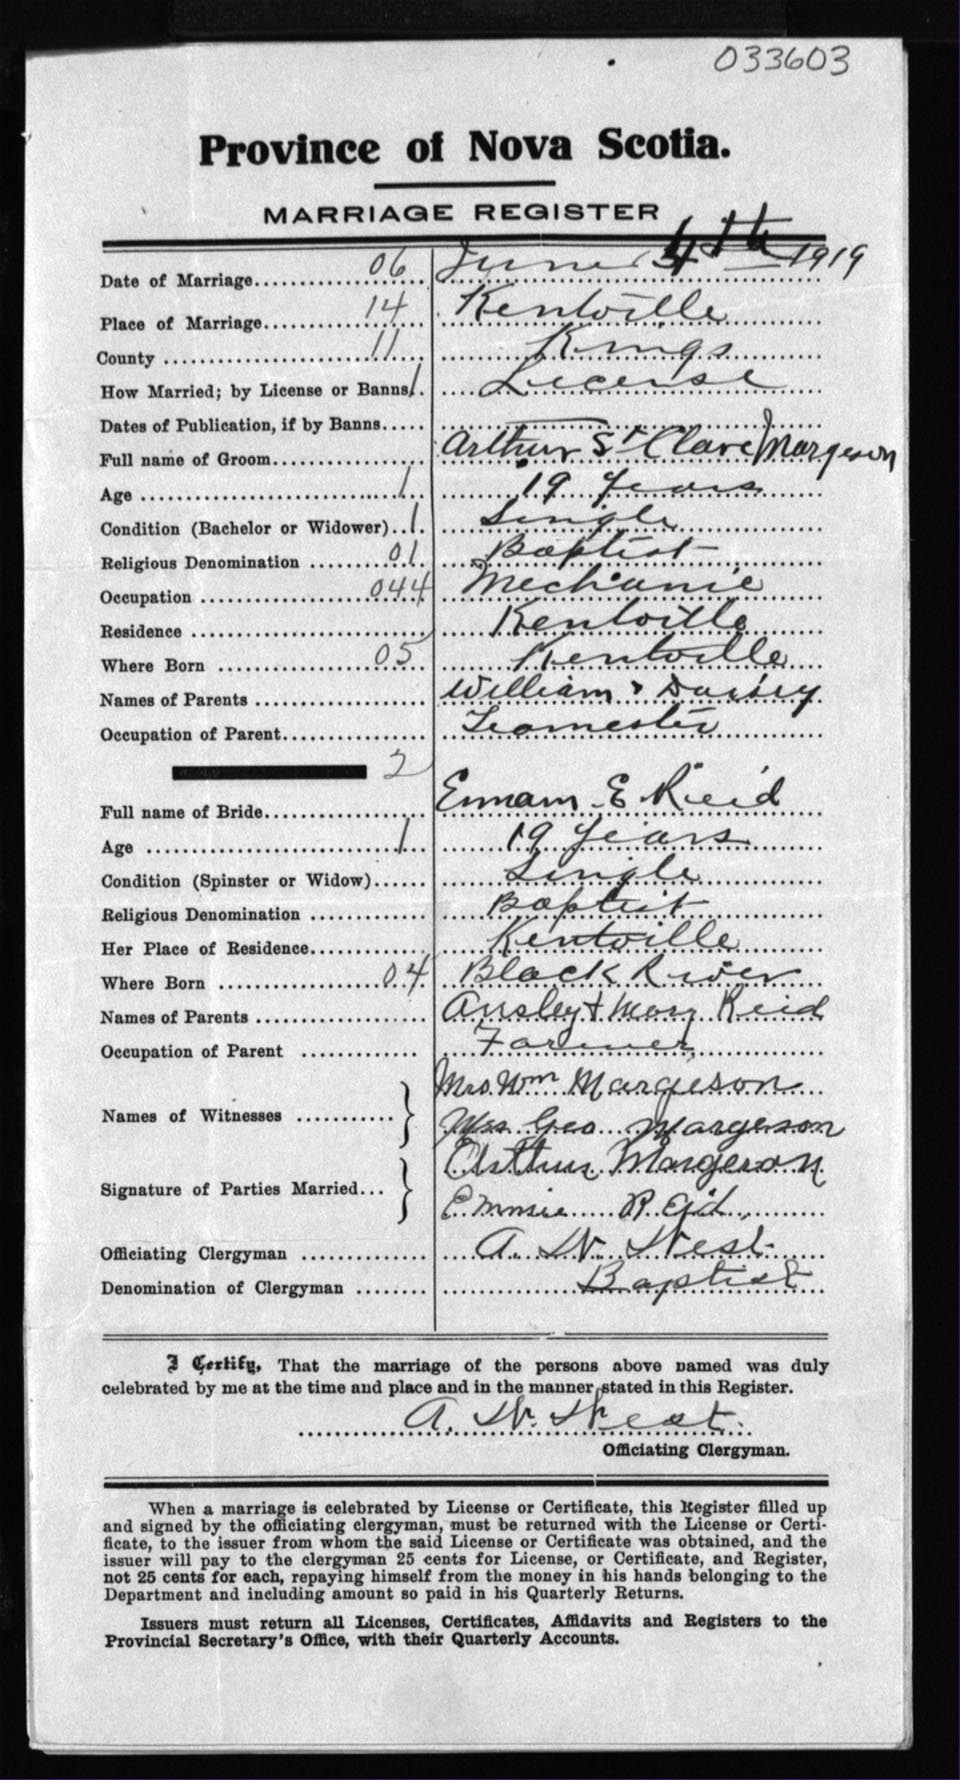 033603
Province of Nova Scotia.
MARRIAGE REGISTER
Date of Marriage 06 June 4th 1919
Place of Marriage 14 Kentville
County 11 Kings
How Married; by License or Banns 1 License
Dates of Publication, if by Banns
Full name of Groom Arthur St Clare Margeson
Age 1 19 years
Condition (Bachelor or Widower) 1 Single
Religious Denomination 01 Baptist
Occupation 044 Mechanic
Residence Kentville
Where Born 05 Kentville
Names of Parents William &
Occupation of Parent Teamester
2
Full name of Bride E. Reid
Age 1 19 years
Condition (Spinster or Widow) Single
Religious Denomination Baptist
Her Place of Residence Kentville
Where Born 04 Black River
Names of Parents Ansley & Mary Reid
Occupation of Parent Farmer
Mrs. Wm Margeson
Names of Witnesses
Mrs Geo Margeson
Arthur Margeson
Signature of Parties Married...
Emmie Reid
Officiating Clergyman A. W. West
Denomination of Clergyman Baptist
I Certify, That the marriage of the persons above named was duly
celebrated by me at the time and place and in the manner stated in this Register.
A. W. West.
Officiating Clergyman.
When a marriage is celebrated by License or Certificate, this Register filled up
and signed by the officiating clergyman, must be returned with the License or Certi-
ficate, to the issuer from whom the said License or Certificate was obtained, and the
issuer will pay to the clergyman 25 cents for License, or Certificate, and Register,
not 25 cents for each, repaying himself from the money in his hands belonging to the
Department and including amount so paid in his Quarterly Returns.
Issuers must return all Licenses, Certificates, Affidavits and Registers to the
Provincial Secretary's Office, with their Quarterly Accounts.